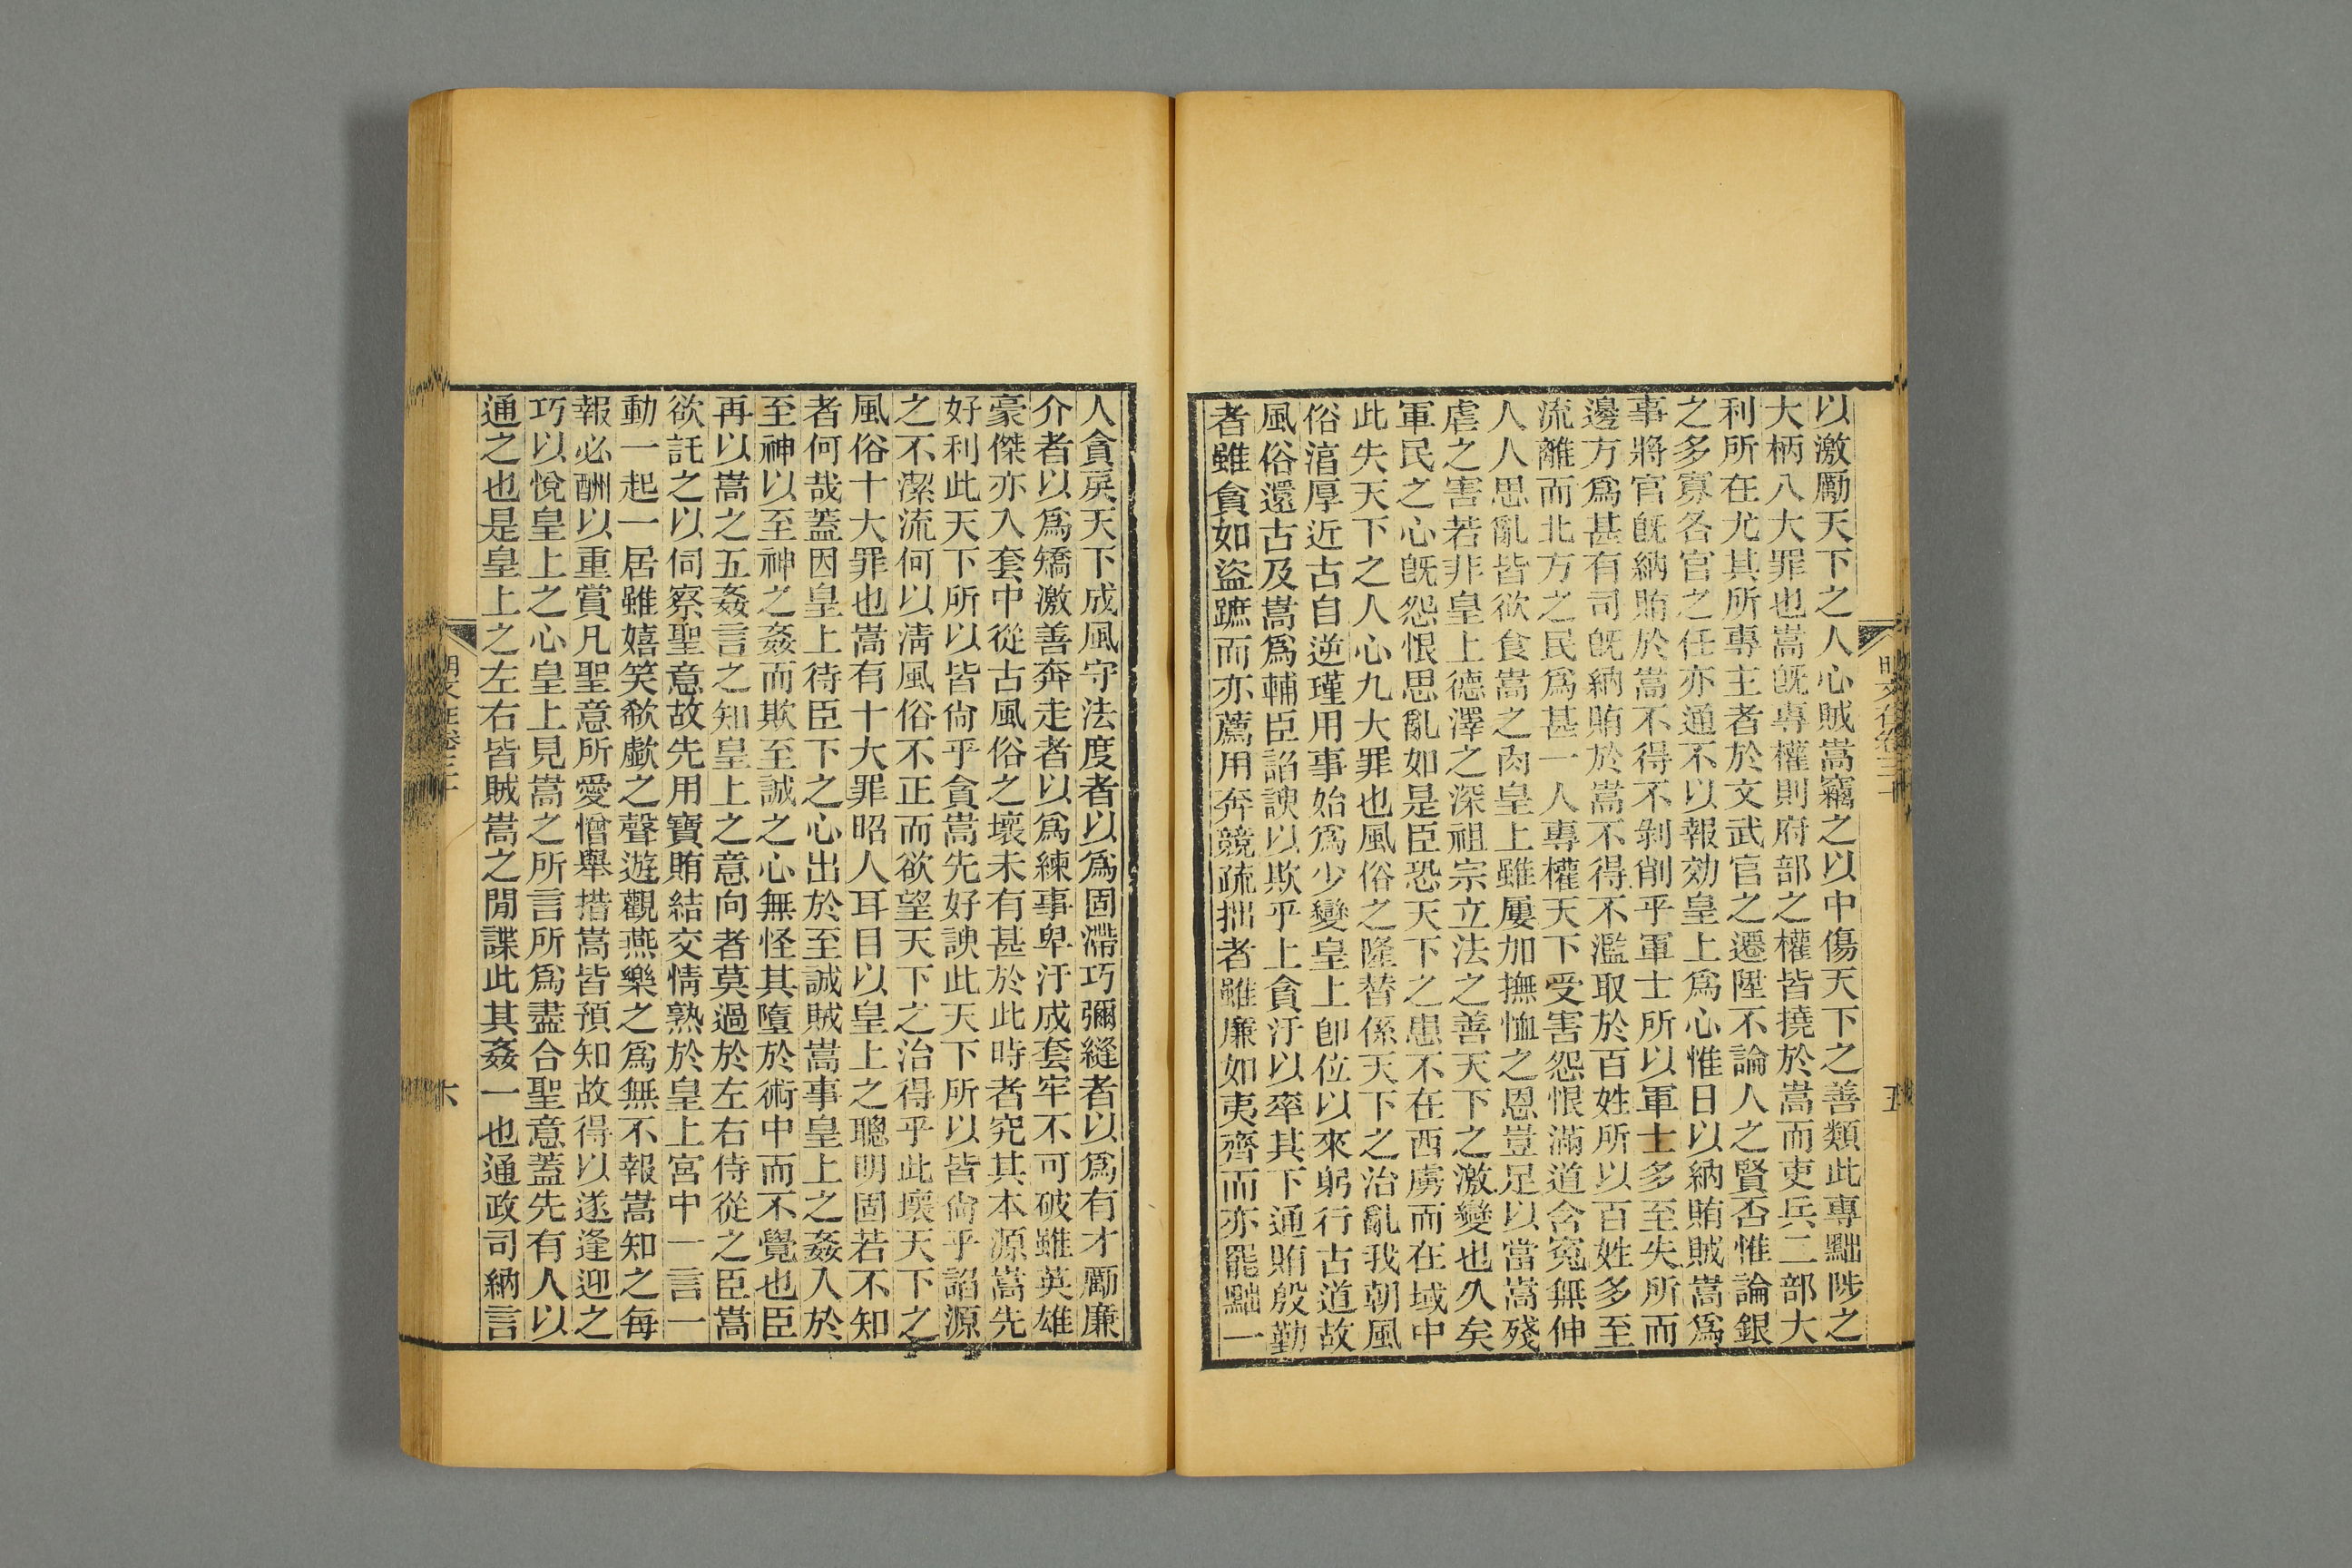 以激勵天下之人心賊嵩竊之以中傷天下之善類此專黜陟之
大柄八大罪也嵩旣專權則府部之權皆撓於嵩而吏兵二部大
利所在尤其所專主者於文武官之遷陞不論人之賢否惟論銀
之多寡各官之任亦通不以報効皇上爲心惟日以納賄賊嵩爲
事將官旣納賄於嵩不得不剝削乎軍士所以軍士多至失所而
邊方爲甚有司旣納賄於嵩不得不濫取於百姓所以百姓多至
流離而北方之民爲甚一人專權天下受害怨恨滿道含冤無伸
人人思亂皆欲食嵩之肉皇上雖屢加撫恤之恩豈足以當嵩殘
虐之害若非皇上德澤之深祖宗立法之善天下之激變也久矣
軍民之心旣怨恨思亂如是臣恐天下之患不在西虜而在域中
此失天下之人心九大罪也風俗之隆替係天下之治亂我朝風
俗湻厚近古自逆瑾用事始爲少變皇上卽位以來躬行古道故
風俗還古及嵩爲輔臣諂諛以欺乎上貪汙以率其下通賄殷勤
者雖貪如盜蹠而亦薦用奔競疏拙者雖廉如夷齊而亦罷黜一
五
人貪戾天下成風守法度者以爲固滯巧彌縫者以爲有才勵廉
介者以爲矯激善奔走者以爲練事卑汙成套牢不可破雖英雄
豪傑亦入套中從古風俗之壞未有甚於此時者究其本源嵩先
好利此天下所以皆尙乎貪嵩先好諛此天下所以皆尙乎諂源
之不潔流何以淸風俗不正而欲望天下之治得乎此壞天下之
風俗十大罪也嵩有十大罪昭人耳目以皇上之聰明固若不知
者何哉蓋因皇上待臣下之心出於至誠賊嵩事皇上之姦入於
至神以至神之姦而欺至誠之心無怪其墮於術中而不覺也臣
再以嵩之五姦言之知皇上之意向者莫過於左右侍從之臣嵩
欲託之以伺察聖意故先用寶賄結交情熟於皇上宮中一言一
動一起一居雖嬉笑欷歔之聲遊觀燕樂之爲無不報嵩知之每
報必酬以重賞凡聖意所愛憎舉措嵩皆預知故得以遂逢迎之
巧以悅皇上之心皇上見嵩之所言所爲盡合聖意蓋先有人以
通之也是皇上之左右皆賊嵩之閒諜此其姦一也通政司納言
六